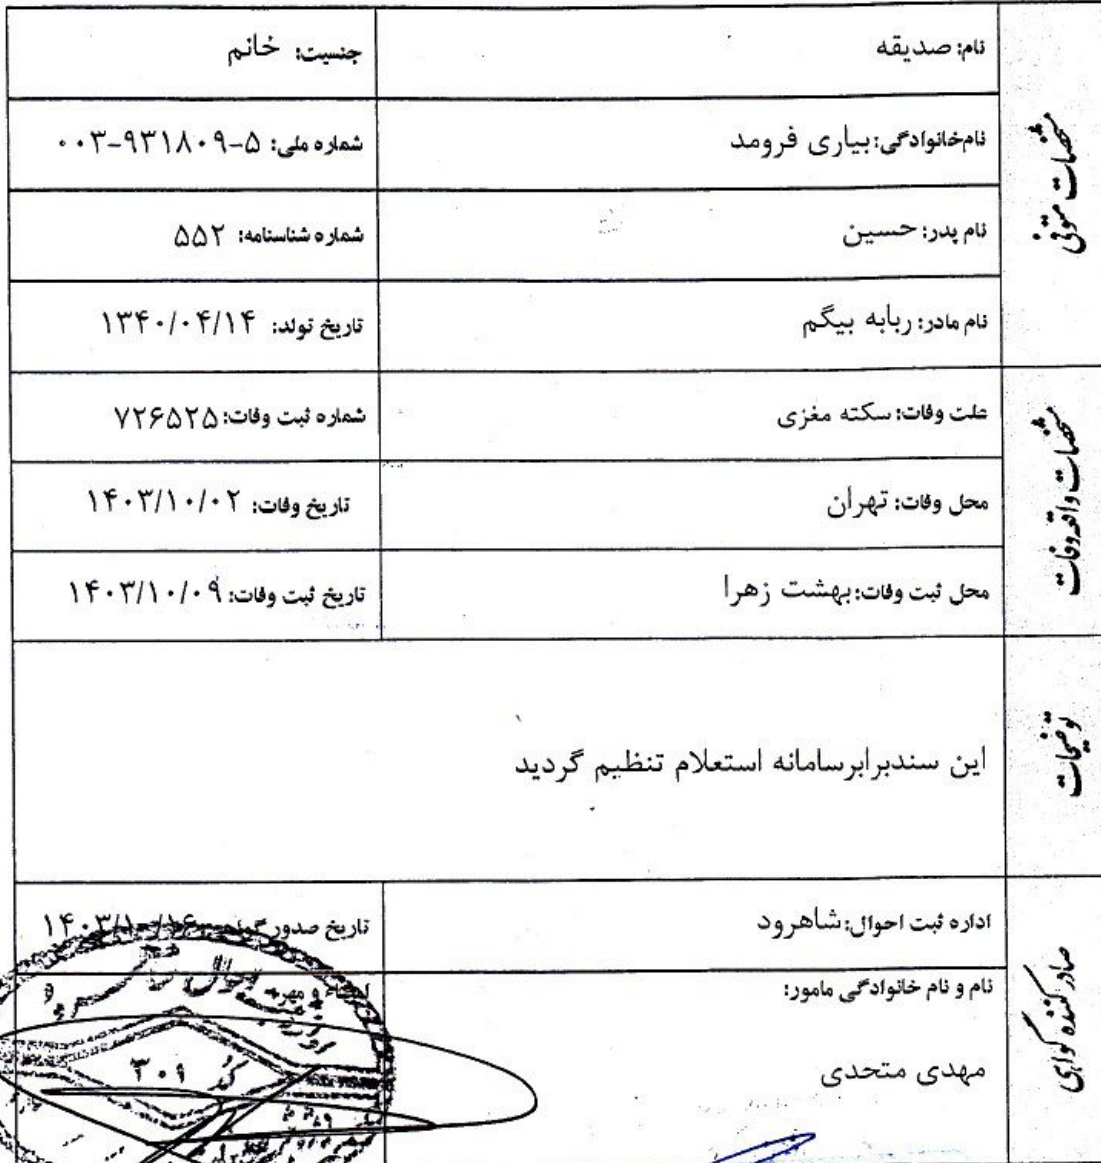 مشخصات متوفی
نام: صدیقه
جنسیت: خانم
نام‌خانوادگی: بیاری فرومد
شماره ملی: ۰۰۳-۹۳۱۸۰۹-۵
نام پدر: حسین
شماره شناسنامه: ۵۵۲
نام مادر: ربابه بیگم
تاریخ تولد: ۱۳۴۰/۰۴/۱۴
مشخصات واقعه وفات
علت وفات: سکته مغزی
شماره ثبت وفات: ۷۲۶۵۲۵
محل وفات: تهران
تاریخ وفات: ۱۴۰۳/۱۰/۰۲
محل ثبت وفات: بهشت زهرا
تاریخ ثبت وفات: ۱۴۰۳/۱۰/۰۹
توضیحات
این سندبرابرسامانه استعلام تنظیم گردید
صادر کننده گواهی
اداره ثبت احوال: شاهرود
تاریخ صدور گواهی: ۱۴۰۳/۱۰/۱۶
نام و نام خانوادگی مامور:
مهدی متحدی
امضاء و مهر
کد ۳۰۹